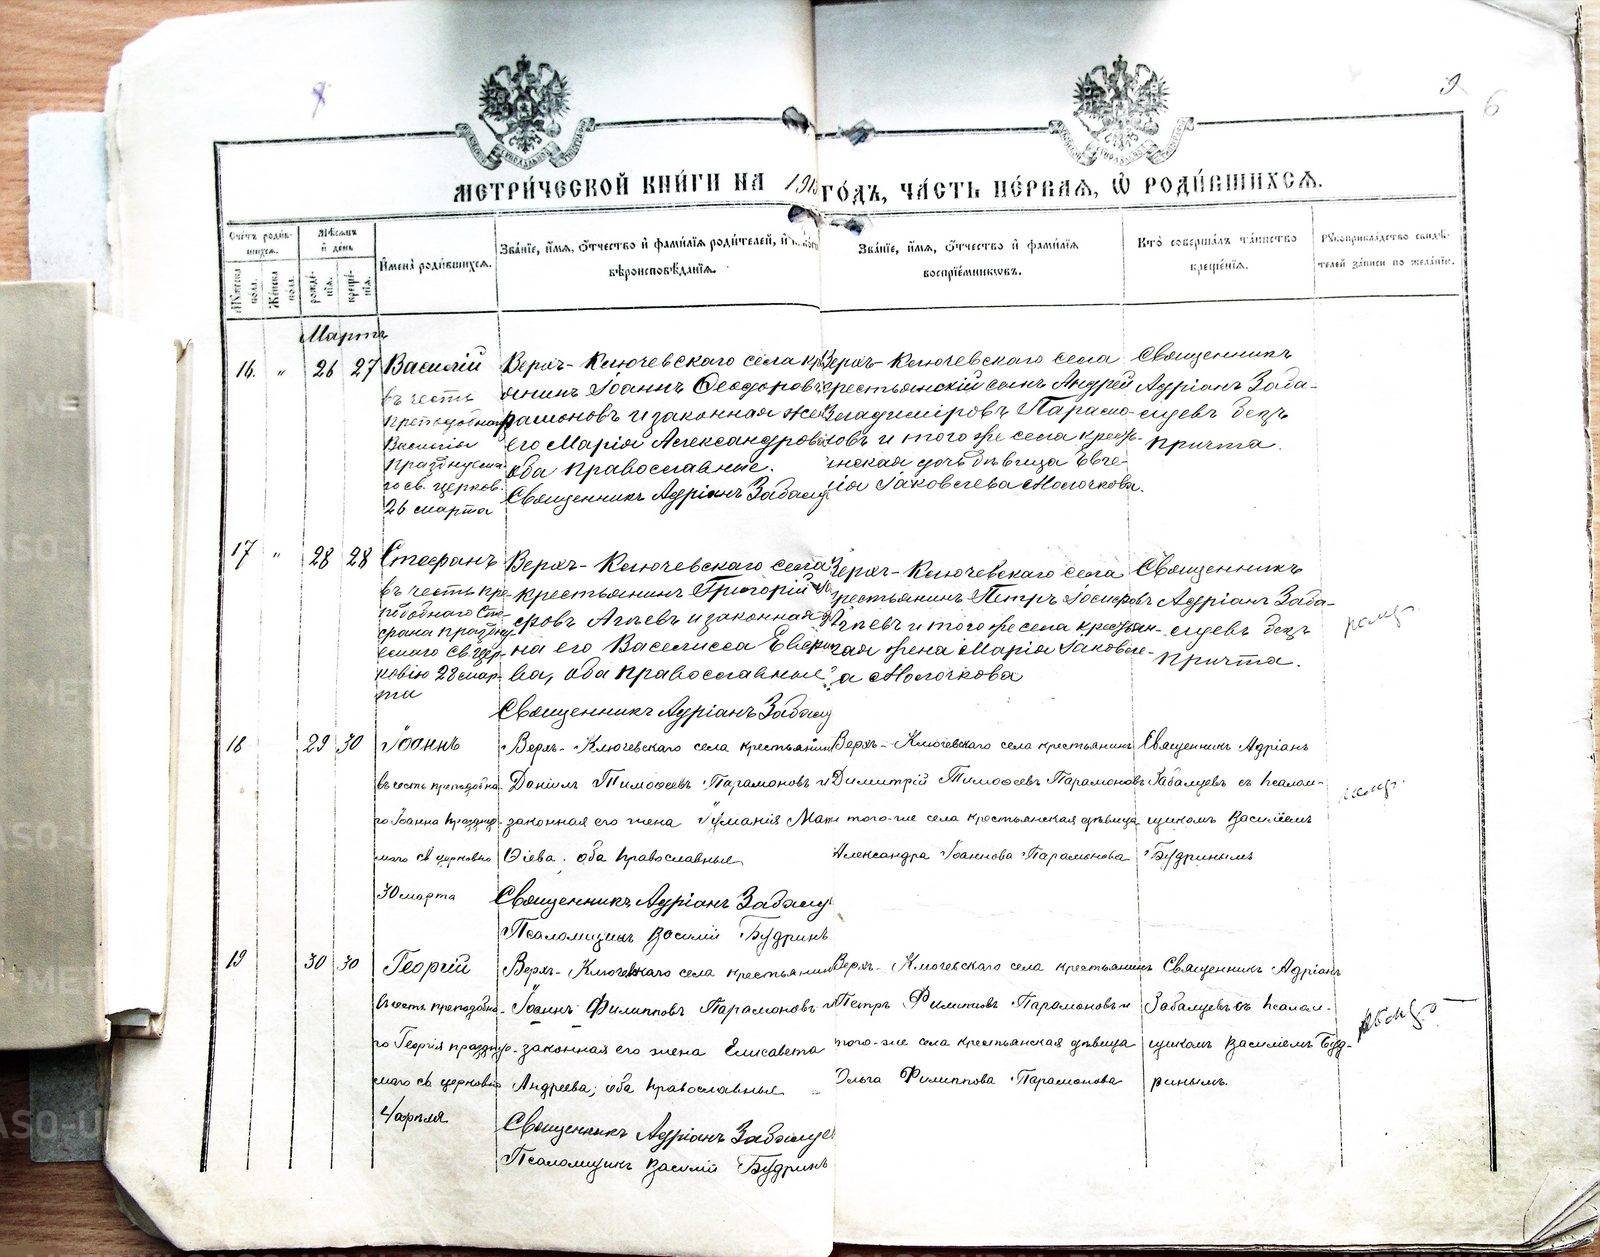 9
6
МЕТРИ́ЧЕСКОЙ КНИ́ГИ НА 191 ГО́ДЪ, ЧА́СТЬ ПЕ́РВАЯ, Ѿ РОДИ́ВШИХСѦ.
Сче́тъ роди́в-
шихсѧ.
Мꙋ́жеска по́ла.
Же́нска по́ла.
Мѣ́сѧцъ
и҆ де́нь
рожде́-
нїѧ.
креще́-
нїѧ.
И҆мена̀ роди́вшихсѧ.
Зва́нїе, и҆́мѧ, ѻ҆́тчество и҆ фами́лїѧ роди́телей, и҆
вѣроисповѣ́данїѧ.
Зва́нїе, и҆́мѧ, ѻ҆́тчество и҆ фами́лїѧ
воспрїе́мникѡвъ.
Кто̀ соверша́лъ та́инство
креще́нїѧ.
Рꙋкоприкла́дство свидѣ́-
телей за́писи по жела́нїю.
Мартъ
16. " 26 27 Василій
въ честь
преподобнаго
Василія
празднуема-
го св. церков.
26 марта
Верхъ-Ключевского села кр
янинъ Іоаннъ Ѳеодоровъ
рамоновъ и законная же
его Марія Александрова
оба православные.
Священникъ Адріанъ Забалу
Верхъ-Ключевского села
крестьянскій сынъ Андрей
Владиміровъ Парамо-
новъ и того же села кресть-
янская дочь дѣвица Евге-
нія Іаковлева Молочкова.
Священникъ
Адріанъ Заба-
луевъ безъ
причта.
17 " 28 28 Стефанъ
въ честь пре-
подобнаго Сте-
фана праздну-
емаго св. цер-
ковію 28 мар-
та
Верхъ-Ключевского села
крестьянинъ Григорій
фовъ Агѣевъ и законная
на его Василисса
ва, оба православные
Священникъ Адріанъ Забалу
Верхъ-Ключевского села
крестьянинъ Петръ Іосифовъ
Агѣевъ и того же села крестьян-
ская жена Марія Іаковле-
ва Молочкова
Священникъ
Адріанъ Заба-
луевъ безъ
причта.
18 29 30 Іоаннъ
въ честь преподобна-
го Іоанна праздну-
маго св церковію
30 марта
Верхъ-Ключевского села крестьянинъ
Даніилъ Тимоѳеевъ Парамоновъ и
законная его жена Іуманія Мат
ѳіева; оба православные
Священникъ Адріанъ Забалу
Псаломщикъ Василій Будринъ
Верхъ-Ключевского села крестьянинъ
Димитрій Тимоѳеевъ Парамоновъ
того-же села крестьянская дѣвица
Александра Іоаннова Парамонова
Священникъ Адріанъ
Забалуевъ съ псалом-
щикомъ Василіемъ
Будринымъ
19 30 30 Георгій
въ честь преподобна-
го Георгія праздну-
маго св церковію
4 апрѣля
Верхъ-Ключевского села крестьянинъ
Іоаннъ Филипповъ Парамоновъ и
законная его жена Елисавета
Андреева; оба православные
Священникъ Адріанъ Забалуе
Псаломщикъ Василій Будринъ
Верхъ-Ключевского села крестьянинъ
Петръ Филипповъ Парамоновъ и
того-же села крестьянская дѣвица
Ольга Филиппова Парамонова
Священникъ Адріанъ
Забалуевъ съ псалом-
щикомъ Василіемъ Буд-
ринымъ.